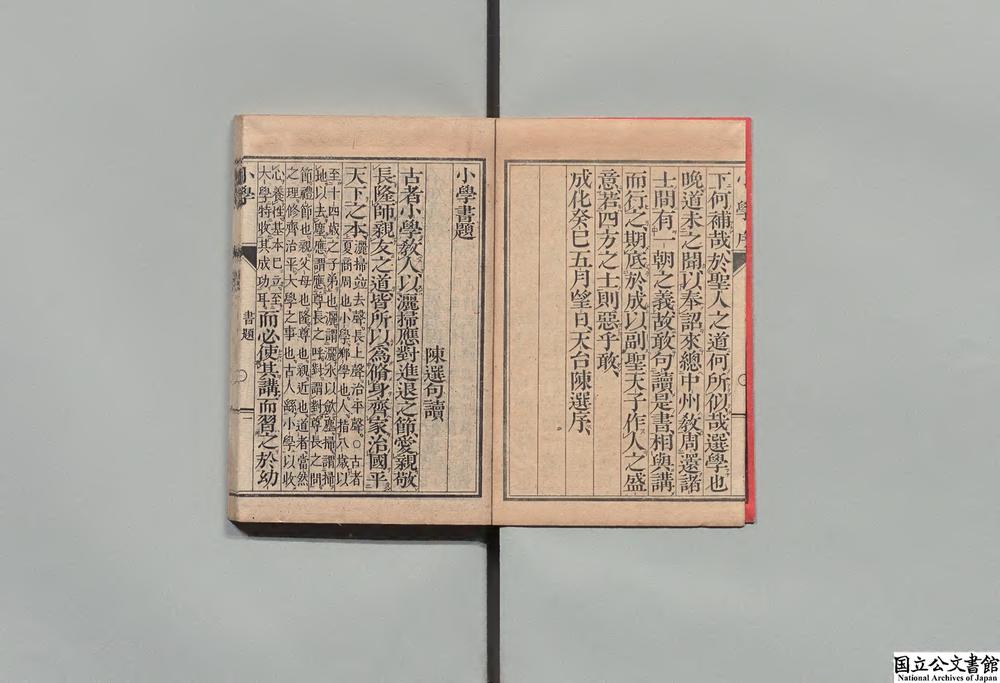 小學序
下何補哉於聖人之道何所似哉選學也
晚道未之聞以奉詔來總中州教周還諸
士間有一朝之義故敢句讀是書相與講
而行之期底於成以副聖天子作人之盛
意若四方之士則惡乎敢、
成化癸巳五月望日天台陳選序、
小學書題
陳選句讀
古者小學教人以灑掃應對進退之節愛親敬
長隆師親友之道皆所以爲脩身齊家治國平
天下之本
灑掃竝去聲長上聲治平聲○古者
夏商周也小學鄉學也人指八歲以
至十四歲之子弟也灑謂灑水以斂塵掃謂掃
地以去塵應謂應尊長之呼對謂對尊長之問
節禮節也親父母也隆尊也親近也道者當然
之理修齊治平大學之事也古人繇小學以收
心養性基本已立至
大學特收其成功耳
而必使其講而習之於幼
小學
書題
一
国立公文書館
National Archives of Japan